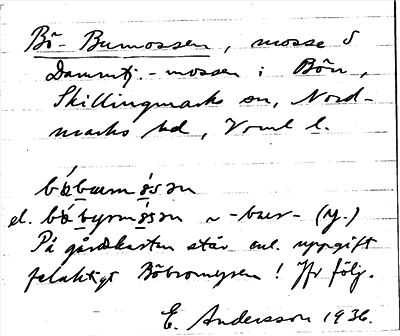 Bö-Bumossen, mosse S
Dammtj.-mossen i Bön,
Skillingmarks sn, Nord-
marks hd, Vrml l.
el. ~ -bur- (y.)
På gårdskartan står enl. uppgift
felaktigt Böbromyren! Jfr följ.
E. Andersson 1936.